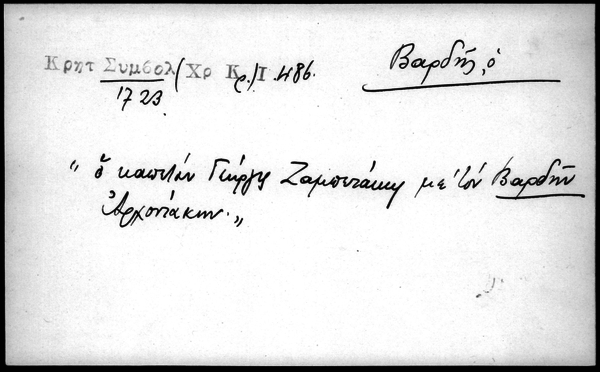 Κρητ Συμβολ (Χρ Κρ.) Ι. 486.
1723
Βαρδῆς, ὁ
" ὁ καπετὰν Γεώργης Ζαμπετάκης μὲ τὸν Βαρδῆν
Ἀρχοντάκην. "